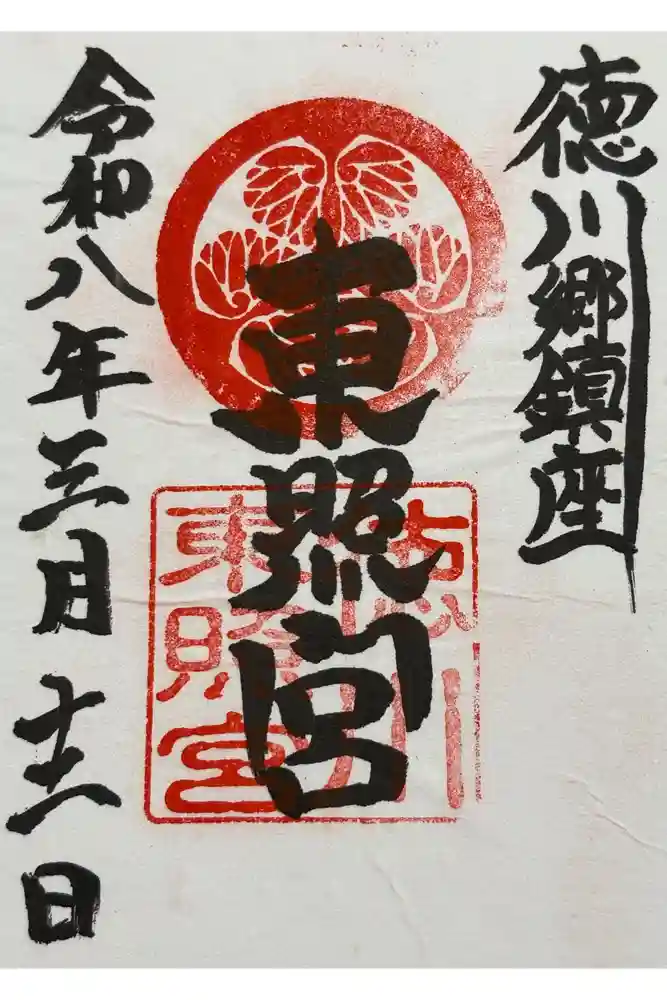 徳川郷鎮座
東照宮
令和八年三月 日
東照宮